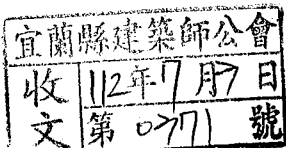 宜蘭縣建築師公會
收文
112年7月7日
第 0771 號